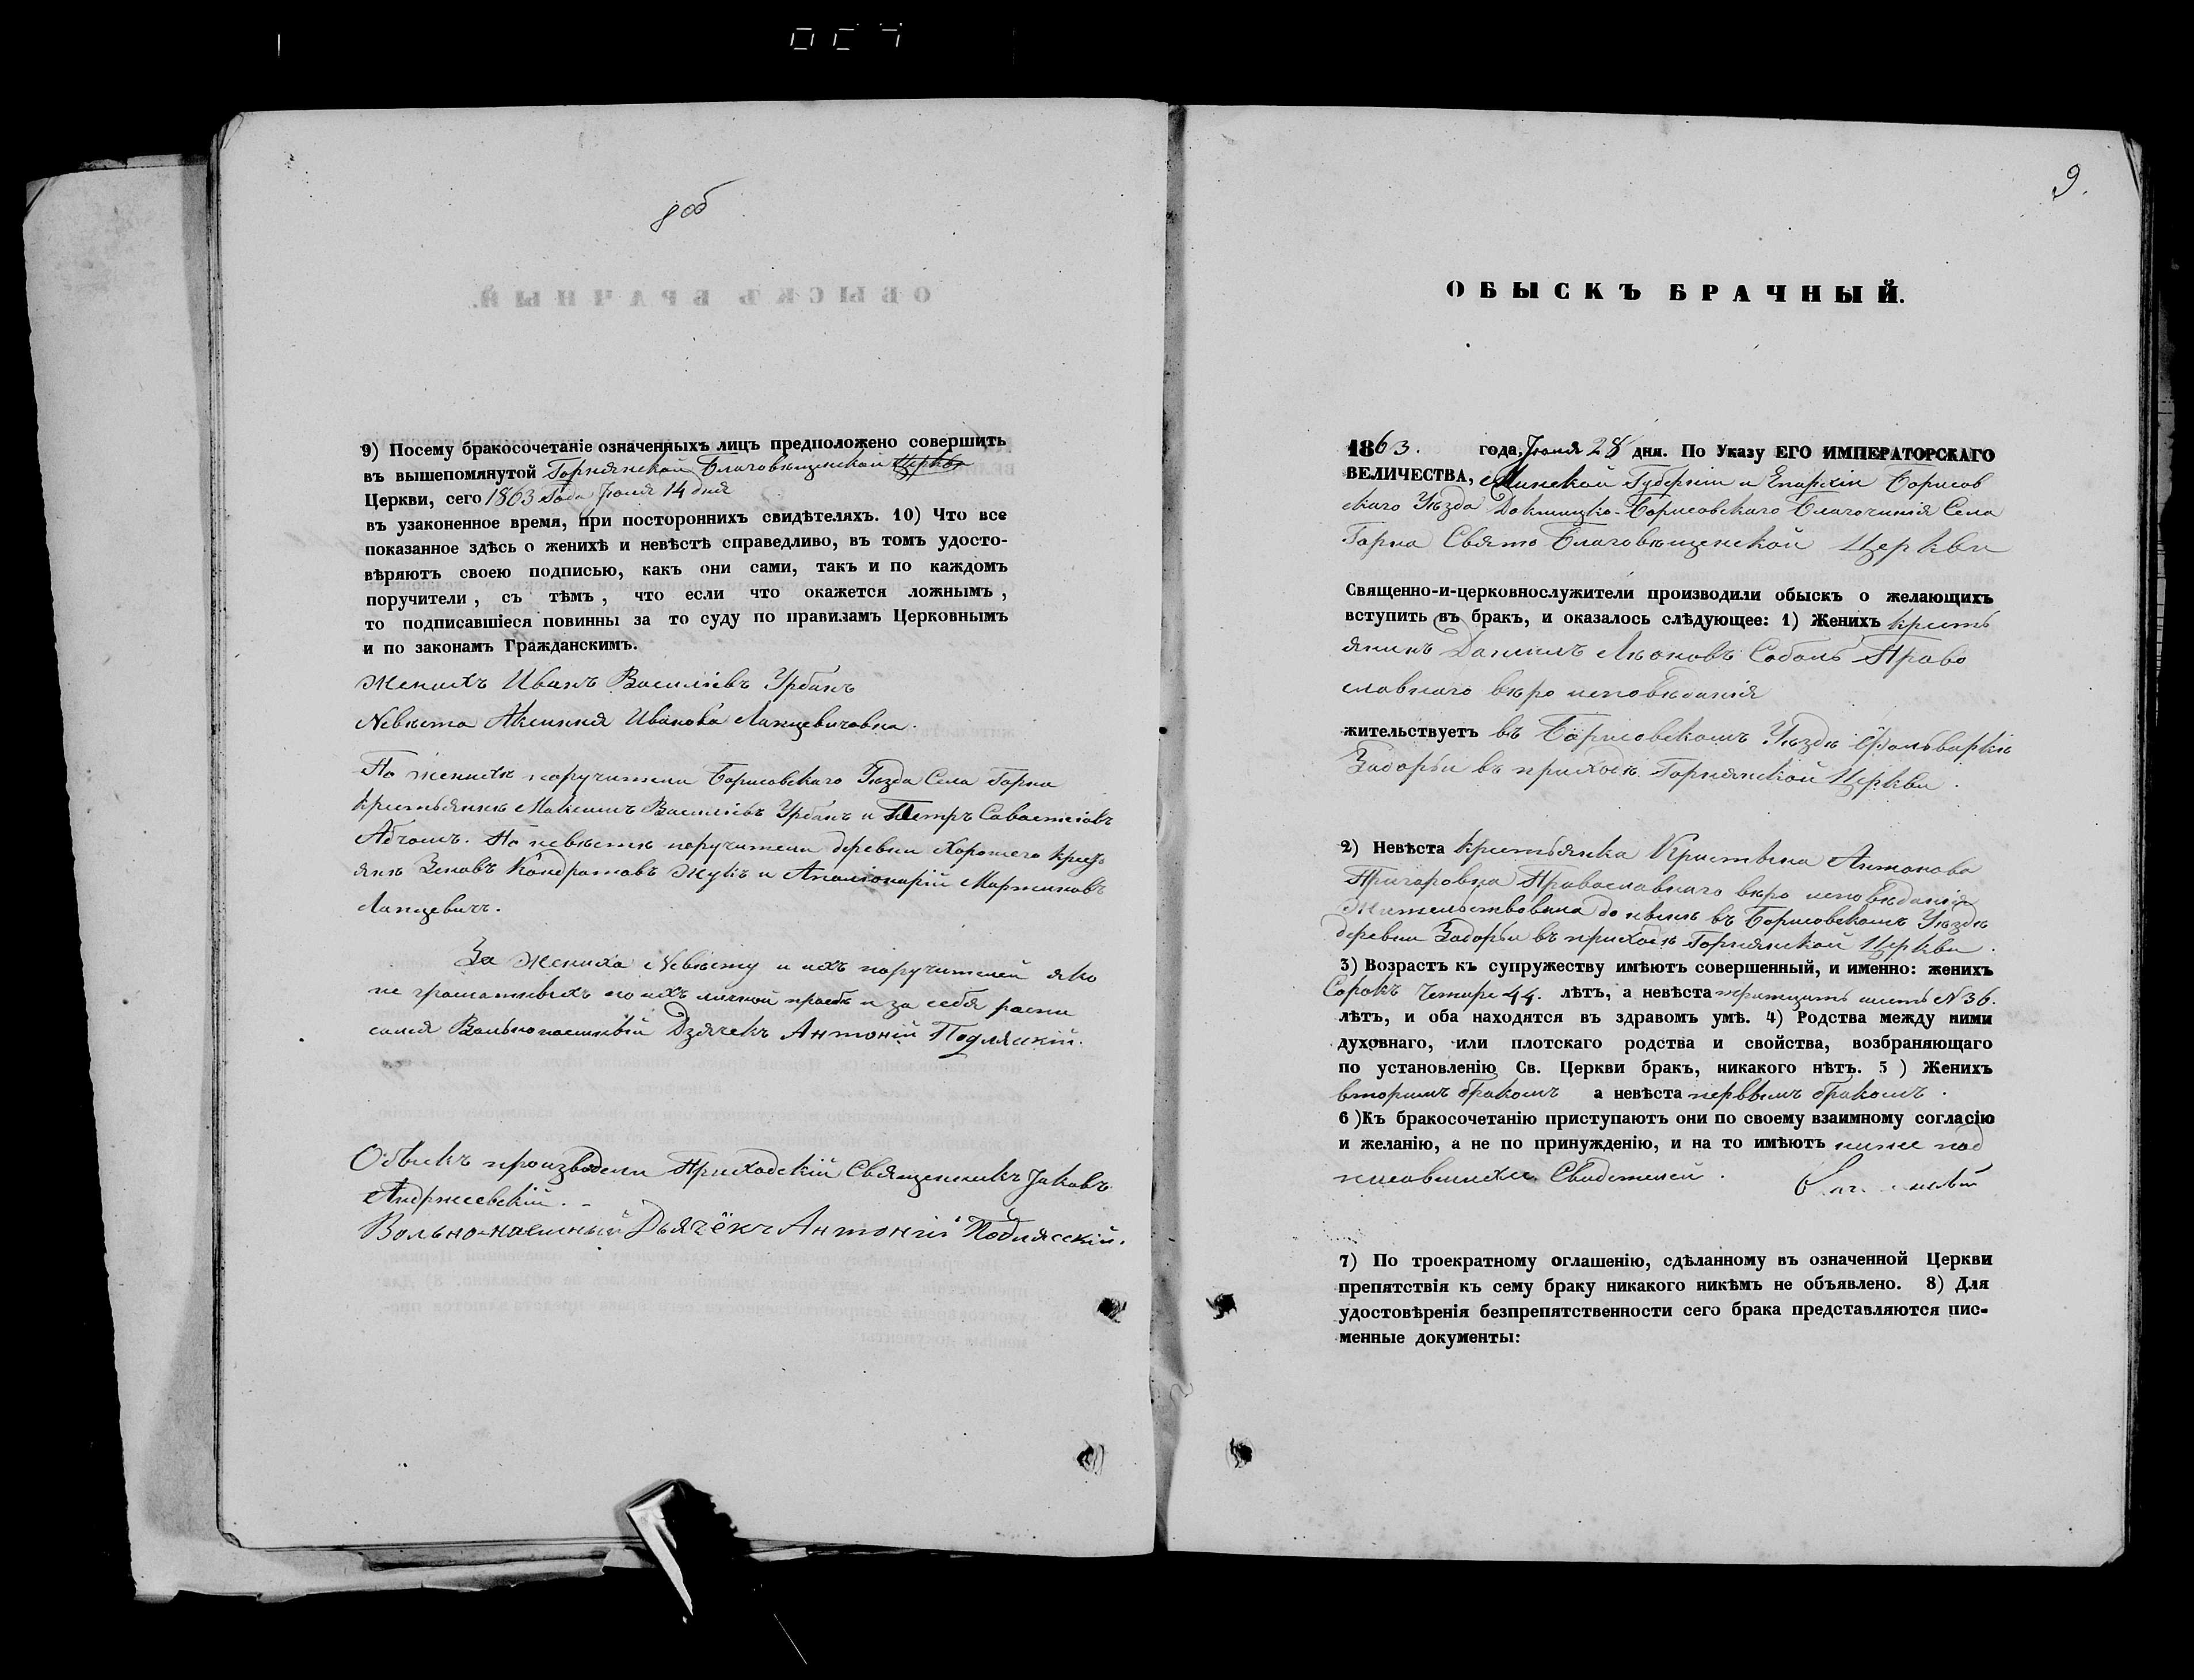 8 об
9) Посему бракосочетаніе означенныхъ лицъ предположено совершить
въ вышепомянутой Горнянской Благовѣщенской Церкви
Церкви, сего 1863 Года Іюня 14 дня
въ узаконенное время, при постороннихъ свидѣтеляхъ. 10) Что все
показанное здѣсь о женихѣ и невѣстѣ справедливо, въ томъ удосто-
вѣряютъ своею подписью, какъ они сами, такъ и по каждомъ
поручители, съ тѣмъ, что если что окажется ложнымъ,
то подписавшіеся повинны за то суду по правизамъ Церковнымъ
и по законамъ Гражданскимъ.
Женихъ Иванъ Василіевъ Урбанъ
Невѣста Аксинія Иванова Лапцевичовна.
По женихѣ поручители Борисовскаго Уѣзда Села Горна
крестьянѣ Максимъ Василіевъ Урбанъ и Петръ Савастіевъ
По невѣстѣ поручители деревни Хорошего крест
янѣ Кондратовъ Жукъ и Мартиновъ
Лапцевичъ.
За Жениха Невѣсту и ихъ поручителей яко
не граматныхъ по ихъ личной прозбѣ и за себя распи
сался Вольнонаемный Дзячекъ Антоній Подляскій.
Обыскъ производили Приходскій Священникъ Іаковъ
Андржеевскій.
Вольно-наемный Дьячёкъ Антоній Подлясскій.
9.
ОБЫСКЪ БРАЧНЫЙ.
1863. года, Іюня 28 дня. По Указу ЕГО ИМПЕРАТОРСКАГО
ВЕЛИЧЕСТВА, Минской Губерніи и Епархіи Борисов
скаго Уѣзда Докшицко-Борисовскаго Благочинія Села
Горна Свято Благовѣщенской Церкви
Священно-и-церковнослужители производили обыскъ о желающихъ
вступить въ бракъ, и оказалось слѣдующее: 1) Женихъ крестъ
янинъ Даниилъ Леоновъ Соболь Право
славнаго вѣро исповѣданія
жительствуетъ въ Борисовскомъ Уѣздѣ Фольваркѣ
Заборьи въ приходѣ Горнянской Церкви.
2) Невѣста крестьянка Кристина Антонова
Православнаго вѣро исповѣданія
Жительствовала до нынѣ въ Борисовскомъ Уѣздѣ
деревни Заборьи въ приходѣ Горнянской Церкви.
3) Возрастъ къ супружеству имѣютъ совершенный, и именно: женихъ
Сорокъ Четыре 44. лѣтъ, а невѣста тритцать шесть N 36.
лѣтъ, и оба находятся въ здравомъ умѣ. 4) Родства между ними
духовнаго, или плотскаго родства и свойства, возбраняющаго
по установленію Св. Церкви бракъ, никакого нѣтъ. 5 ) Женихъ
вторымъ бракомъ а невѣста первымъ бракомъ.
6 )Къ бракосочетанію приступаютъ они по своему взаимному согласію
и желанію, а не по принужденію, и на то имѣютъ ниже под
писавшихся Свидетелей.
7) По троекратному оглашенію, сдѣланному въ означенной Церкви
препятствія къ сему браку никакого никѣмъ не объявлено. 8) Для
удостовѣренія безпрепятственности сего брака представляются пис-
менные документы: